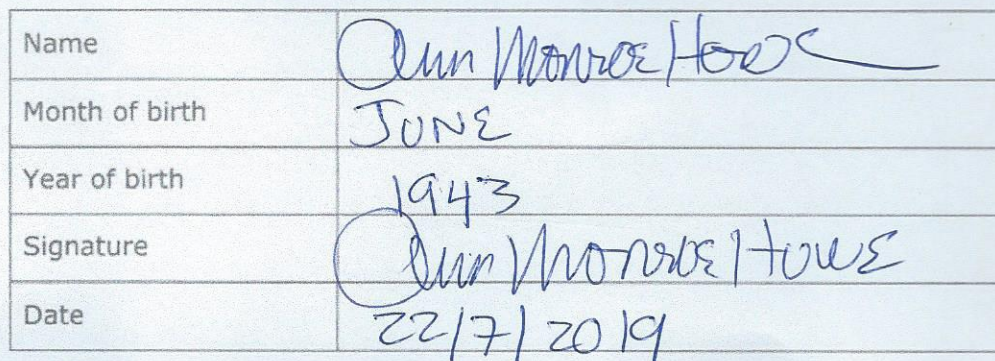 Name Ann Monroe Howe
Month of birth JUNE
Year of birth 1943
Signature Ann Monroe Howe
Date 22/7/2019